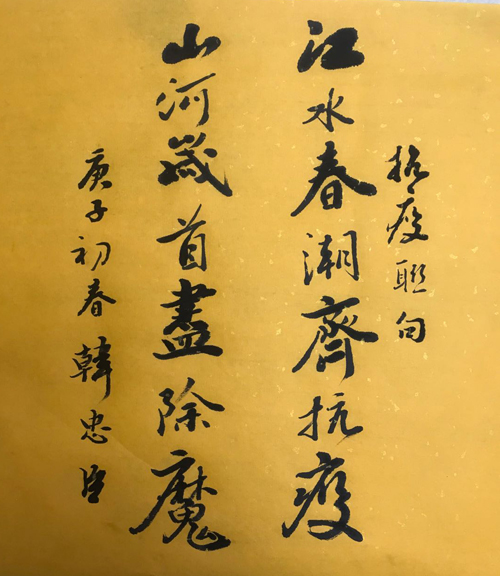 抗疫聯句
江水春潮齊抗疫
山河歲首盡除魔
庚子初春韓忠臣